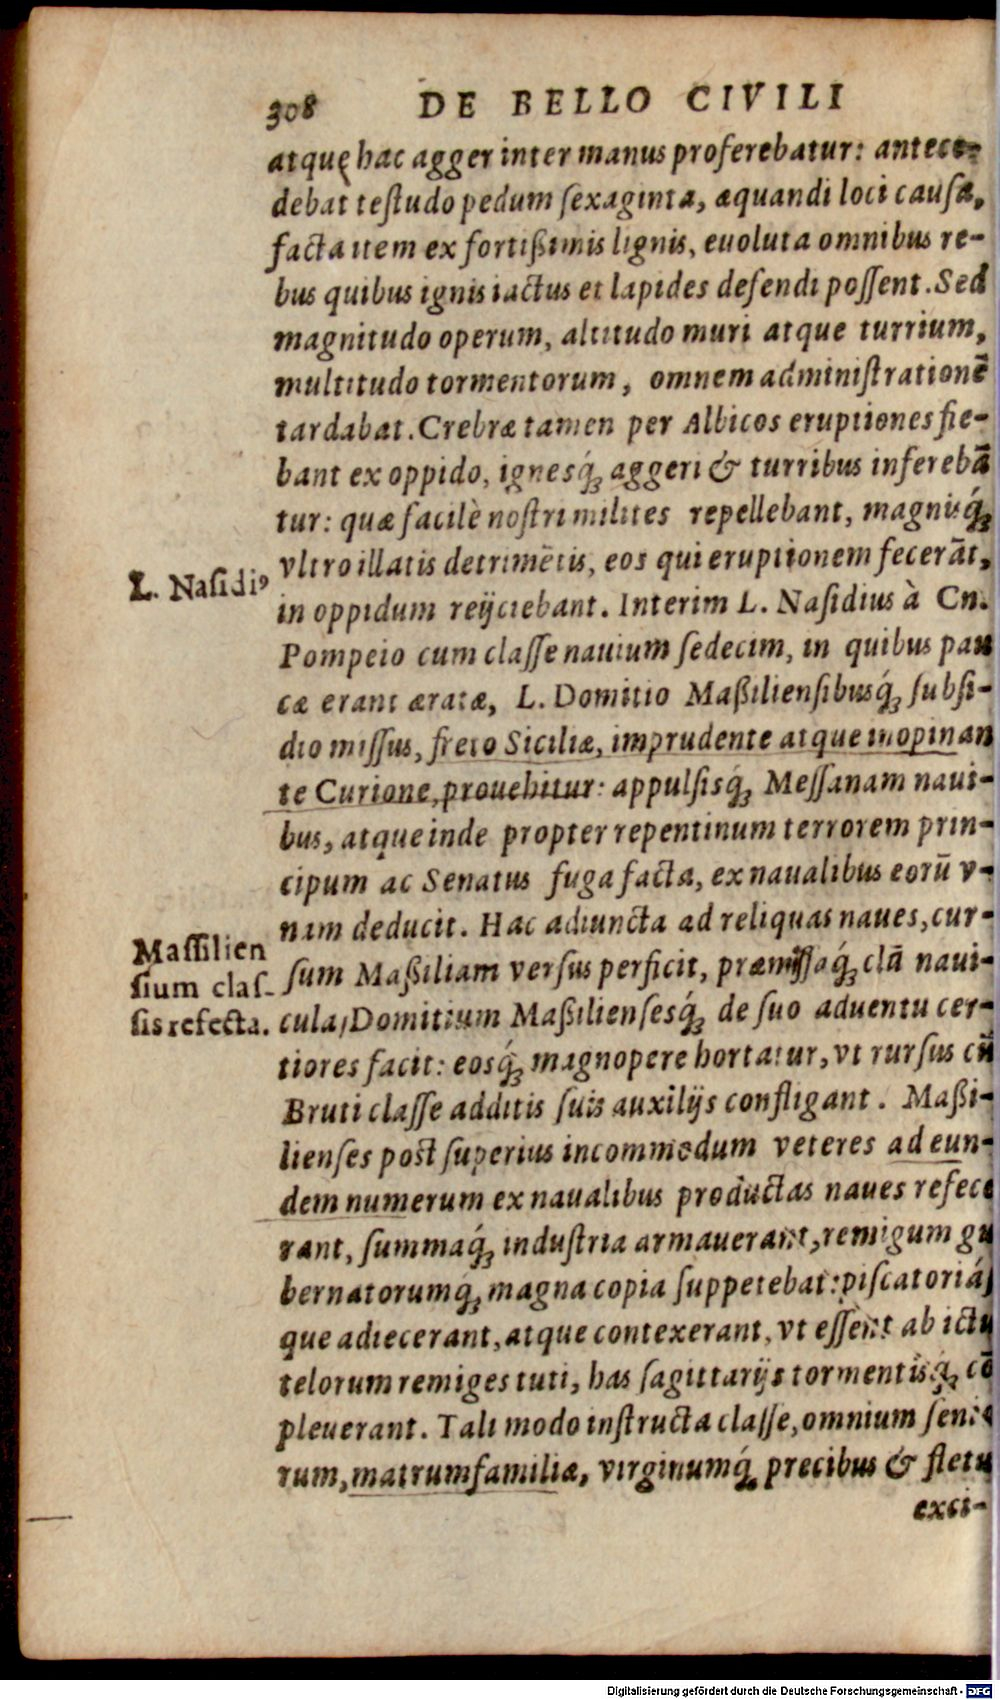 308 DE BELLO CIVILI
atquę hac agger inter manus proferebatur: antece-
debat testudo pedum sexaginta, æquandi loci causa,
facta item ex fortißimis lignis, euoluta omnibus re-
bus quibus ignis iactus et lapides defendi possent. Sed
magnitudo operum, altitudo muri atque turrium,
multitudo tormentorum, omnem administrationē
tardabat. Crebræ tamen per Albicos eruptiones fie-
bant ex oppido, ignesq́ꝫ aggeri & turribus inferebā
tur: quæ facilè nostri milites repellebant, magnisq́ꝫ
vltro illatis detrimētis, eos qui eruptionem fecerāt,
L. Nasidiꝰ
in oppidum reijciebant. Interim L. Nasidius à Cn.
Pompeio cum classe nauium sedecim, in quibus pau
cæ erant æratæ, L. Domitio Maßiliensibusq́ꝫ subsi-
dio missus, freto Siciliæ, imprudente atque inopinan
te Curione, prouehitur: appulsisq́ꝫ Messanam naui-
bus, atque inde propter repentinum terrorem prin-
cipum ac Senatus fuga facta, ex naualibus eorū v-
nam deducit. Hac adiuncta ad reliquas naues, cur-
Massilien
sium clas-
sis refecta.
sum Maßiliam versus perficit, præmissaq́ꝫ clā naui-
cula, Domitium Maßiliensesq́ꝫ de suo aduentu cer-
tiores facit: eosq́ꝫ magnopere hortatur, vt rursus cū
Bruti classe additis suis auxilijs confligant. Maßi-
lienses post superius incommodum veteres ad eun-
dem numerum ex naualibus productas naues refece
rant, summaq́ꝫ industria armauerant, remigum gu
bernatorumq́ꝫ magna copia suppetebat: piscatoriás
que adiecerant, atque contexerant, vt essent ab ictu
telorum remiges tuti, has sagittarijs tormentisq́ꝫ cō
pleuerant. Tali modo instructa classe, omnium senio
rum, matrumfamiliæ, virginumq́ꝫ precibus & fletu
exci-
Digitalisierung gefördert durch die Deutsche Forschungsgemeinschaft - DFG